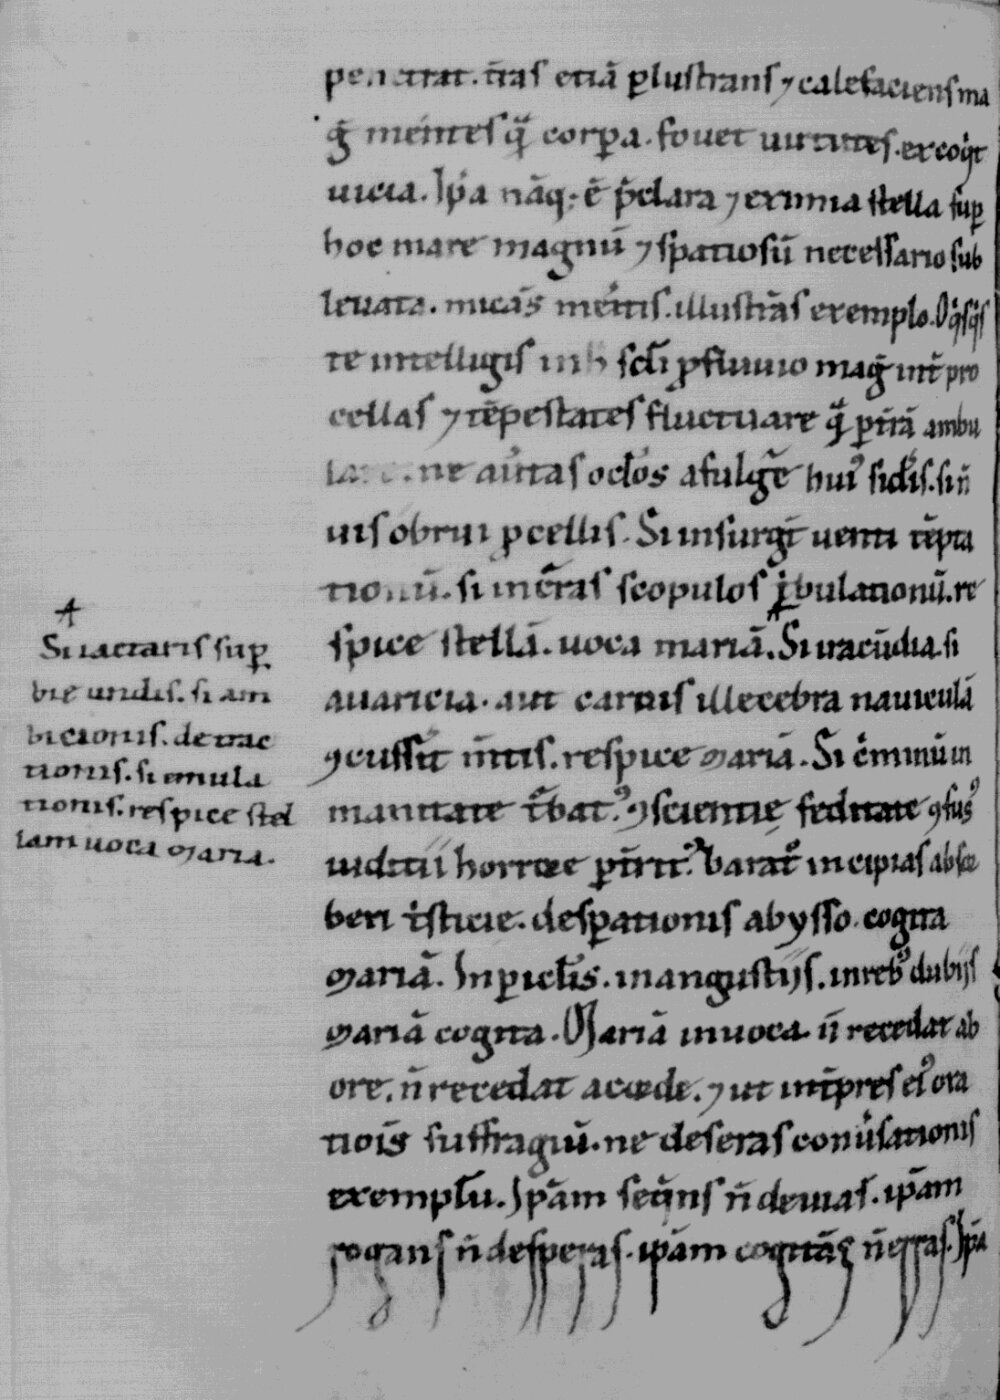 penetrat. t̄ras etiā ꝑlustrans ⁊ calefaciens ma
ḡ mentes qͣ̄ corꝑa. fouet uirtutes. excoqͥt
uicia. Ip̄a nāq; ē p̄clara ⁊ eximia stella suꝑ
hoc mare magnū ⁊ spatiosū necessario sub
leuata. micās meritis. illustrās exemplo. O qͥsqͥs
te intelligis in scl̄i ꝓfluuio maḡ int̄ pro
cellas ⁊ tēpestates fluctuare qͣ̄ ꝑ t̄rā ambu
lare. ne au̾tas ocl̄os a fulgr̄e huiꝰ sid̾is. si n̄
uis obrui ꝓcellis. Si insurgt̄ uenti tēpta
tionū. si incr̄ras scopulos tͥbulationū. re
spice stellā. uoca mariā. Si iracūdia. si
auaricia. aut carnis illecebra nauiculā
ꝯcussit̄ m̄tis. respice mariā. Si cͥminū in
manitate t̄batꝰ. ꝯscientię feditate ꝯfusꝰ
iudicii horrore ꝑt̄ritꝰ baratͦ incipias absor
beri tͥsticie. desꝑationis abysso. cogita
mariā. In ꝑicl̄is. in angustijs. in rebꝰ dubijs
mariā cogita. Mariā inuoca. n̄ recedat ab
ore. n̄ recedat a corde. ⁊ ut inpt̄res eiꝰ ora
tiois̄ suffragiū. ne deseras conu̾sationis
exemplū. Ip̄am seqn̄s n̄ deuias. ip̄am
rogans n̄ desperas. ip̄am cogitās n̄ erras. Ip̄a
Si iactaris suꝑ
bie undis. si am
bicionis. detrac
tionis. si emula
tionis. respice stel
lam uoca maria.